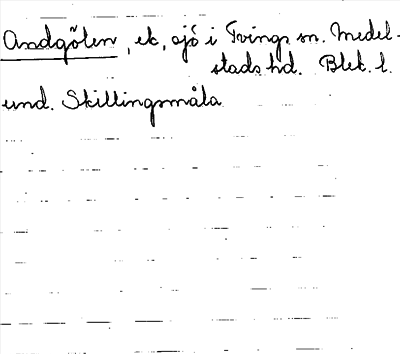 Andgölen, ek, sjö i Tvings sn. Medel-
stads hd. Blek. l.
und. Skillingsmåla